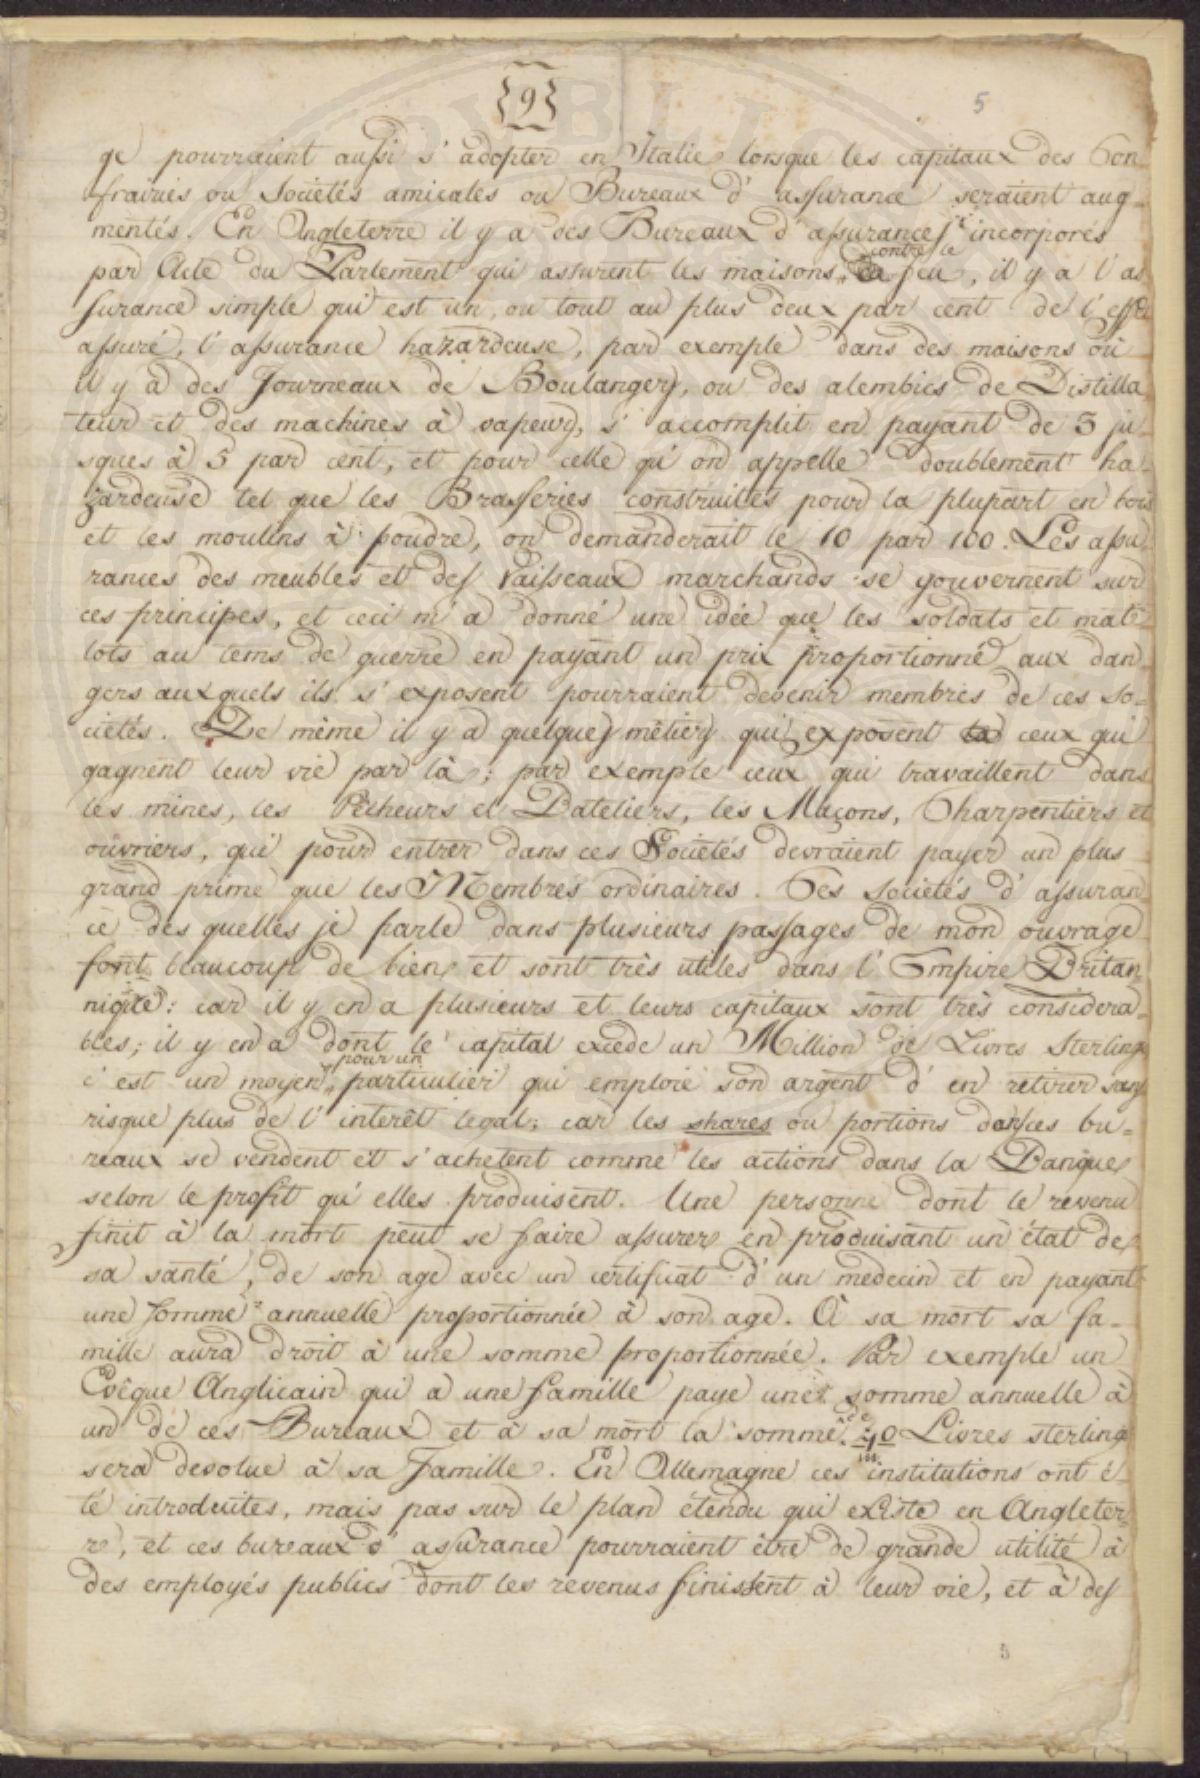 {9}
5
qe pourraient aussi s' adopter en Italie lorsque les capitaux des Con-
frairies ou Societés amicales ou Bureaux d' assurance seraient aug-
mentés. En Angleterre il y a des Bureaux d' assurances incorporés
par Acte du Parlement qui assurent les maisons contre le feu, il y a l' as
surance simple qui est un, ou tout au plus deux par cent de l' effet
assuré, l' assurance hazardeuse, par exemple dans des maisons où
il y a des Fourneaux de Boulangers, ou des alembics de Distilla
teur et des machines à vapeurs, s' accomplit en payant de 3 ju-
sques à 5 par cent, et pour celle qu' on appelle doublement ha-
zardeuse tel que les Brasseries construites pour la plupart en bois
et les moulins à poudre, on demanderait le 10 par 100. Les assu-
rances des meubles et des Vaisseaux marchands se gouvernent sur
ces principes, et ceci m' a donné une idée que les soldats et mate
lots au tems de guerre en payant un prix proportionné aux dan-
gers auxquels ils s' exposent pourraient devenir membres de ces So-
cietés. De même il y a quelques métiers qui exposent ceux qui
gagnent leur vie par là; par exemple ceux qui travaillent dans
les mines, les Pêcheurs et Bateliers, les Maçons, Charpentiers et
ouvriers, qui pour entrer dans ces Societés devraient payer un plus
grand prime que les Membres ordinaires. Ces Societés d' assuran
ce des quelles je parle dans plusieurs passages de mon ouvrage
font beaucoup de bien et sont très utiles dans l' Empire Britan-
nique: car il y en a plusieurs et leurs capitaux sont très considera-
bles; il y en a dont le capital excède un Million de Livres Sterling
c' est un moyen pour un particulier qui emploie son argent d' en retirer sans
risque plus de l' interêt legal; car les shares ou portions dans ces bu-
reaux se vendent et s' achetent comme les actions dans la Banque
selon le profit qu' elles produisent. Une personne dont le revenu
finit à la mort peut se faire assurer en produisant un état de
sa santé, de son age avec un certificat d' un medecin et en payant
une somme annuelle proportionnée à son age. A sa mort sa fa-
mille aura droit à une somme proportionnée. Par exemple un
Evêque Anglicain qui a une famille paye une somme annuelle à
un de ces Bureaux et à sa mort la somme de 40 Livres sterling
sera devolue à sa Famille. En Allemagne ces institutions ont é-
té introduites, mais pas sur le plan étendu qui existe en Angleter-
re, et ces bureaux d' assurance pourraient être de grande utilité à
des employés publics dont les revenus finissent à leur vie, et à des
5